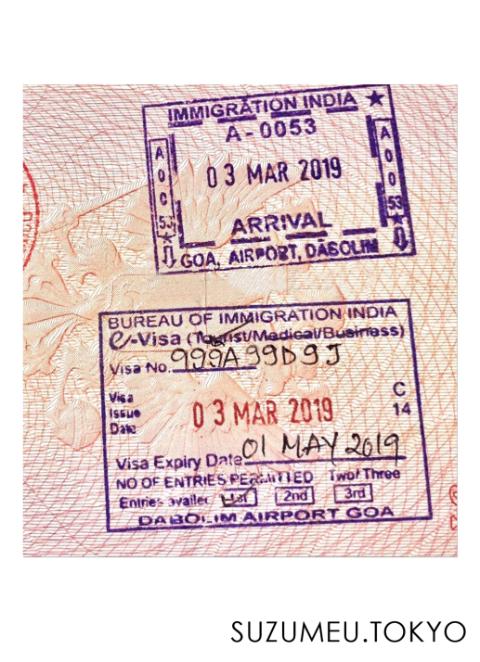 IMMIGRATION INDIA ★
A-0053
A0C53
03 MAR 2019
A0053
ARRIVAL
GOA, AIRPORT, DABOLIM
BUREAU OF IMMIGRATION INDIA
e-Visa (Tourist/Medical/Business)
Visa No. 999A99D9J
Visa Issue Date
03 MAR 2019
C 14
Visa Expiry Date 01 MAY 2019
NO OF ENTRIES PERMITTED Two/Three
Entries availed 1st 2nd 3rd
DABOLIM AIRPORT GOA
SUZUMEU.TOKYO